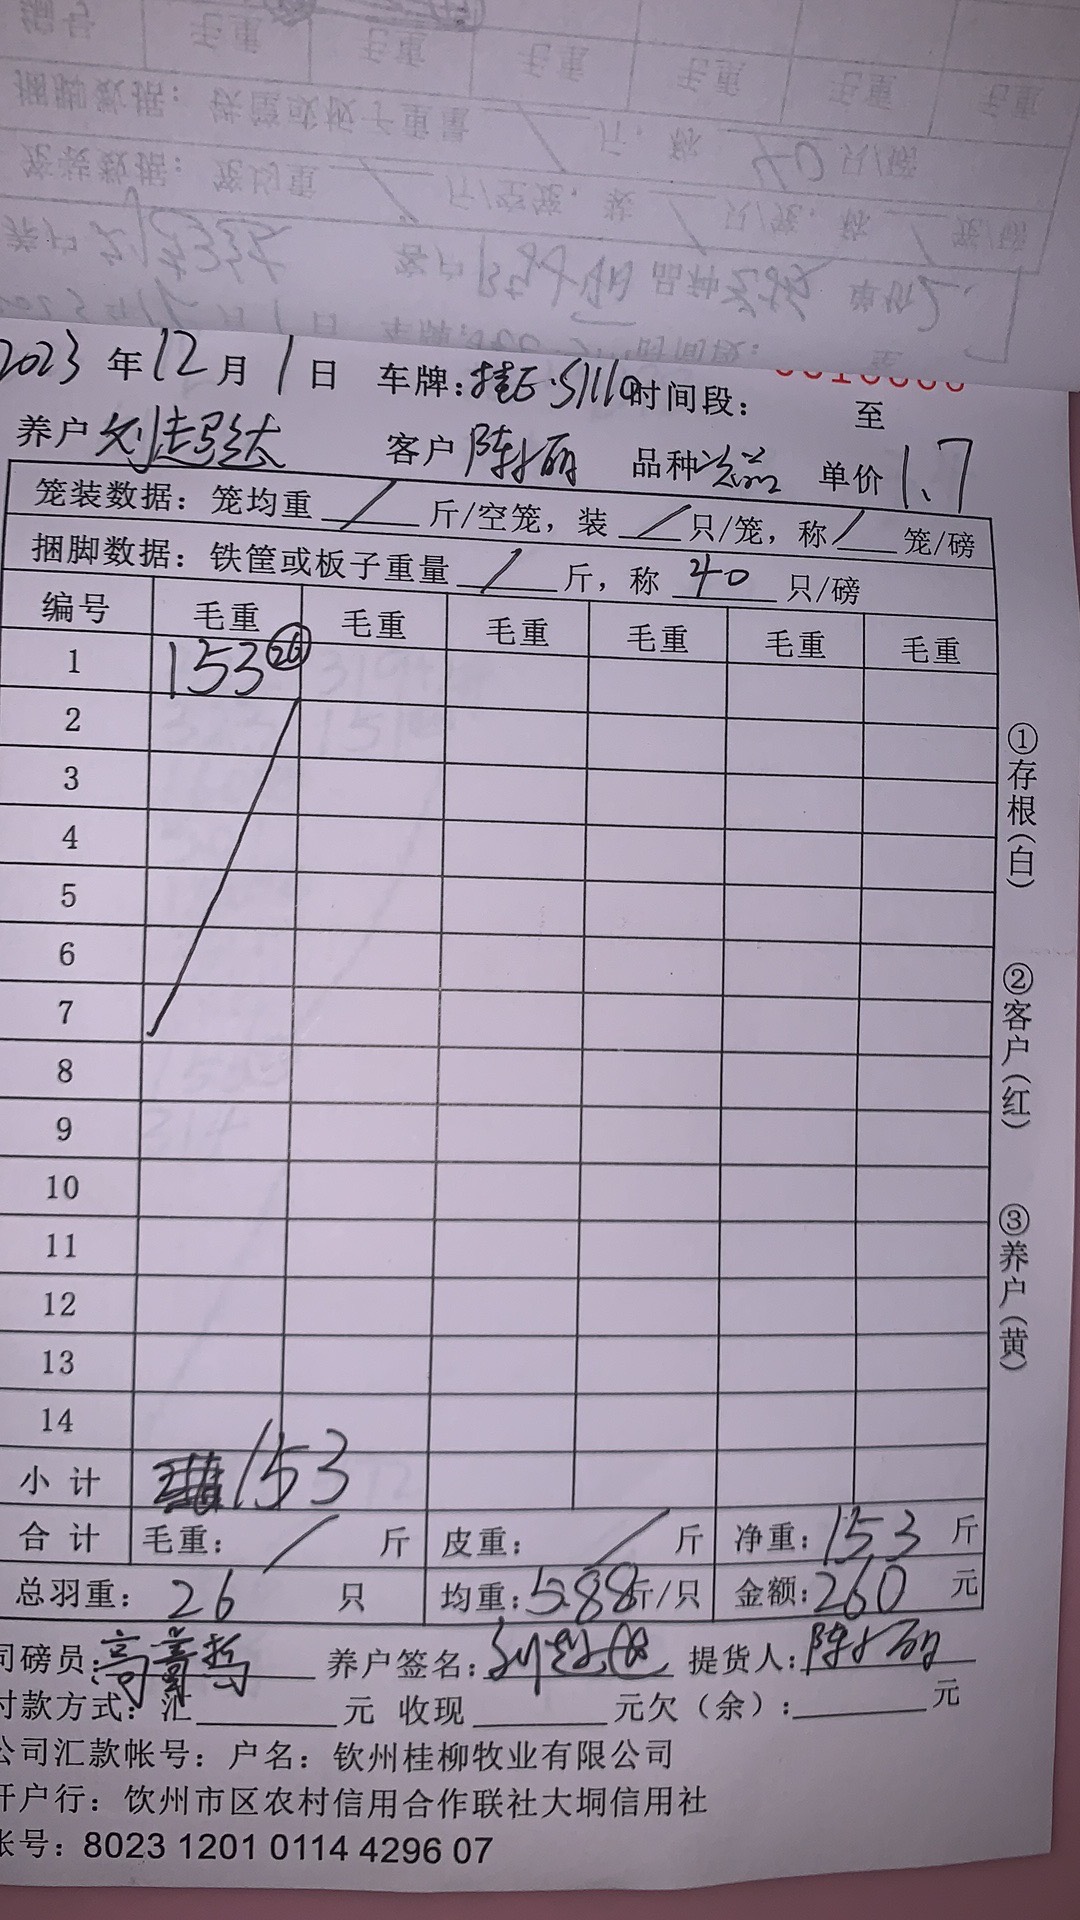 2023年12月1日 车牌: 时间段: 至
养户 客户 陈小丽 品种 单价1.7
笼装数据：笼均重 / 斤/空笼，装 / 只/笼，称 / 笼/磅
捆脚数据：铁筐或板子重量 / 斤，称 40 只/磅
编号 毛重 毛重 毛重 毛重 毛重 毛重
1 153 26
2
3
4
5
6
7
8
9
10
11
12
13
14
小计 153
合计 毛重: / 斤 皮重: / 斤 净重: 153 斤
总羽重: 26 只 均重: 5.88斤/只 金额: 260 元
司磅员: 养户签名: 提货人: 陈小丽
付款方式: 汇 元 收现 元欠（余）: 元
公司汇款帐号：户名：钦州桂柳牧业有限公司
开户行：钦州市区农村信用合作联社大垌信用社
帐号：8023 1201 0114 4296 07
①存根（白）
②客户（红）
③养户（黄）